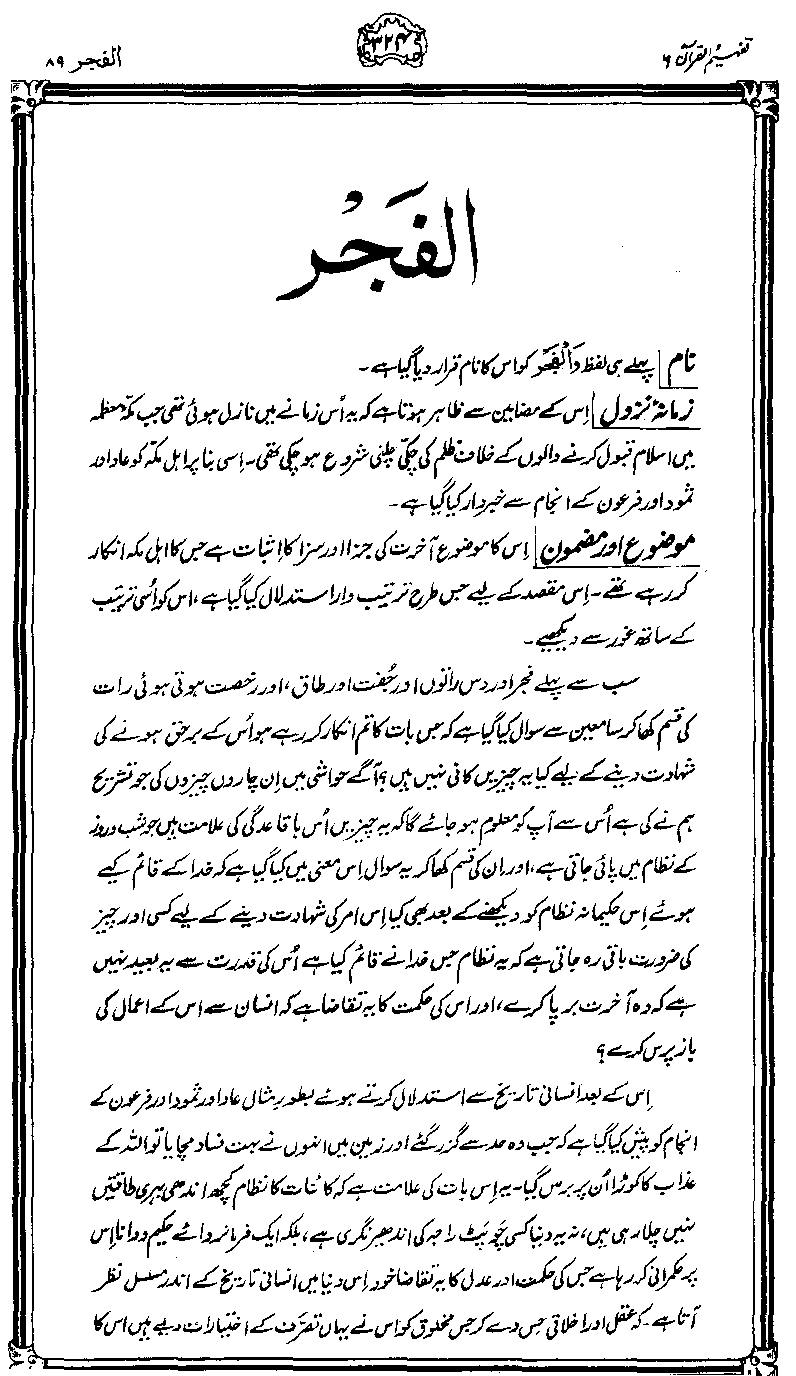 تفہیم القرآن ۶
۳۲۴
الفجر ۸۹
الفَجْر
نام پہلے ہی لفظ وَالْفَجْر کو اس کا نام قرار دیا گیا ہے۔
زمانۂ نزول اِس کے مضامین سے ظاہر ہوتا ہے کہ یہ اُس زمانے میں نازل ہوئی تھی جب مکۂ معظمہ
میں اسلام قبول کرنے والوں کے خلاف ظلم کی چکّی چلنی شروع ہو چکی تھی۔ اِسی بنا پر اہلِ مکّہ کو عاد اور
ثمود اور فرعون کے انجام سے خبردار کیا گیا ہے۔
موضوع اور مضمون اِس کا موضوع آخرت کی جزا اور سزا کا اِثبات ہے جس کا اہلِ مکہ انکار
کر رہے تھے۔ اِس مقصد کے لیے جس طرح ترتیب وار استدلال کیا گیا ہے، اس کو اُسی ترتیب
کے ساتھ غور سے دیکھیے۔
سب سے پہلے فجر اور دس راتوں اور جُفت اور طاق، اور رخصت ہوتی ہوئی رات
کی قسم کھا کر سامعین سے سوال کیا گیا ہے کہ جس بات کا تم انکار کر رہے ہو اُس کے برحق ہونے کی
شہادت دینے کے لیے کیا یہ چیزیں کافی نہیں ہیں؟ آگے حواشی میں اِن چاروں چیزوں کی جو تشریح
ہم نے کی ہے اُس سے آپ کو معلوم ہو جائے گا کہ یہ چیزیں اُس باقاعدگی کی علامت ہیں جو شب و روز
کے نظام میں پائی جاتی ہے، اور ان کی قسم کھا کر یہ سوال اِس معنی میں کیا گیا ہے کہ خدا کے قائم کیے
ہوئے اِس حکیمانہ نظام کو دیکھنے کے بعد بھی کیا اِس امر کی شہادت دینے کے لیے کسی اور چیز
کی ضرورت باقی رہ جاتی ہے کہ یہ نظام جس خدا نے قائم کیا ہے اُس کی قدرت سے یہ بعید نہیں
ہے کہ وہ آخرت برپا کرے، اور اس کی حکمت کا یہ تقاضا ہے کہ انسان سے اس کے اعمال کی
باز پرس کرے؟
اِس کے بعد انسانی تاریخ سے استدلال کرتے ہوئے بطورِ مثال عاد اور ثمود اور فرعون کے
انجام کو پیش کیا گیا ہے کہ جب وہ حد سے گزر گئے اور زمین میں انہوں نے بہت فساد مچایا تو اللہ کے
عذاب کا کوڑا اُن پر برس گیا۔ یہ اِس بات کی علامت ہے کہ کائنات کا نظام کچھ اندھی بہری طاقتیں
نہیں چلا رہی ہیں، نہ یہ دنیا کسی چوپٹ راجہ کی اندھیر نگری ہے، بلکہ ایک فرمانروائے حکیم و دانا اِس
پر حکمرانی کر رہا ہے جس کی حکمت اور عدل کا یہ تقاضا خود اِس دنیا میں انسانی تاریخ کے اندر مسلسل نظر
آتا ہے۔ کہ عقل اور اخلاقی حِس دے کر جس مخلوق کو اس نے یہاں تصرّف کے اختیارات دیے ہیں اس کا